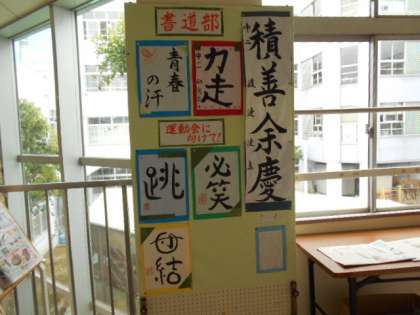 書道部
積善余慶
青春
の汗
力走
運動会に
向けて!
跳
必笑
団結